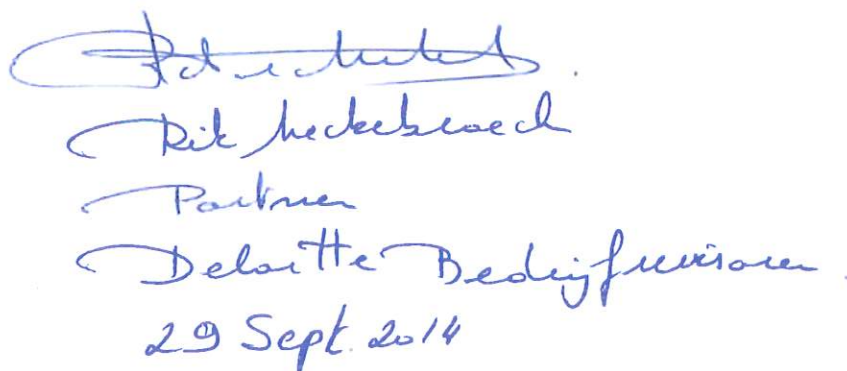 Rik Neckebroeck
Partner
Deloitte Bedrijfsrevisoren.
29 Sept. 2014